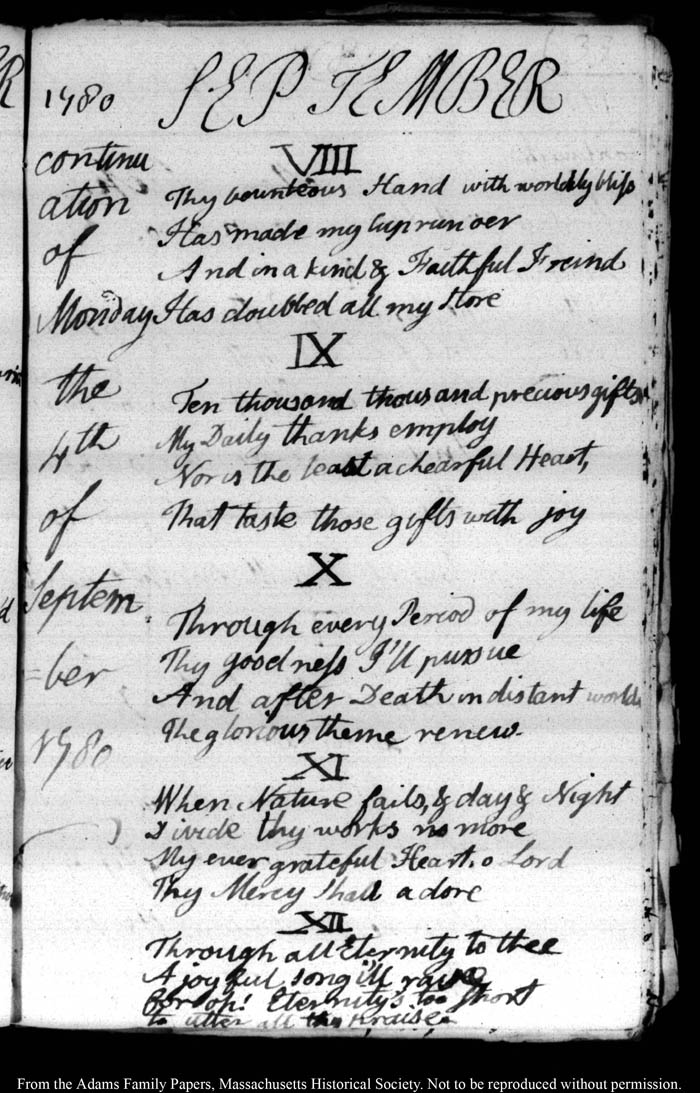 1780 SEPTEMBER
continu
ation
of
Monday
the
4th
of
Septem
=ber
1780
VIII
Thy bounteous Hand with worldly bliss
Has made my Cup run oer
And in a kind & Faithful Freind
Has doubbed all my Store
IX
Ten thousand thousand precious gifts
My Daily thanks employ
Nor is the least a chearful Heart,
That taste those gifts with joy
X
Through every Period of my life
Thy goodness I'll pursue
And after Death in distant worlds
The glorious theme renew.
XI
When Nature fails, & day & Night
Divide thy works no more
My ever grateful Heart, o Lord
Thy Mercy Shall adore
XII
Through all Eternity to thee
A joyful song ill raise
for oh! Eternity's too Short
to utter all thy Praise
From the Adams Family Papers, Massachusetts Historical Society. Not to be reproduced without permission.